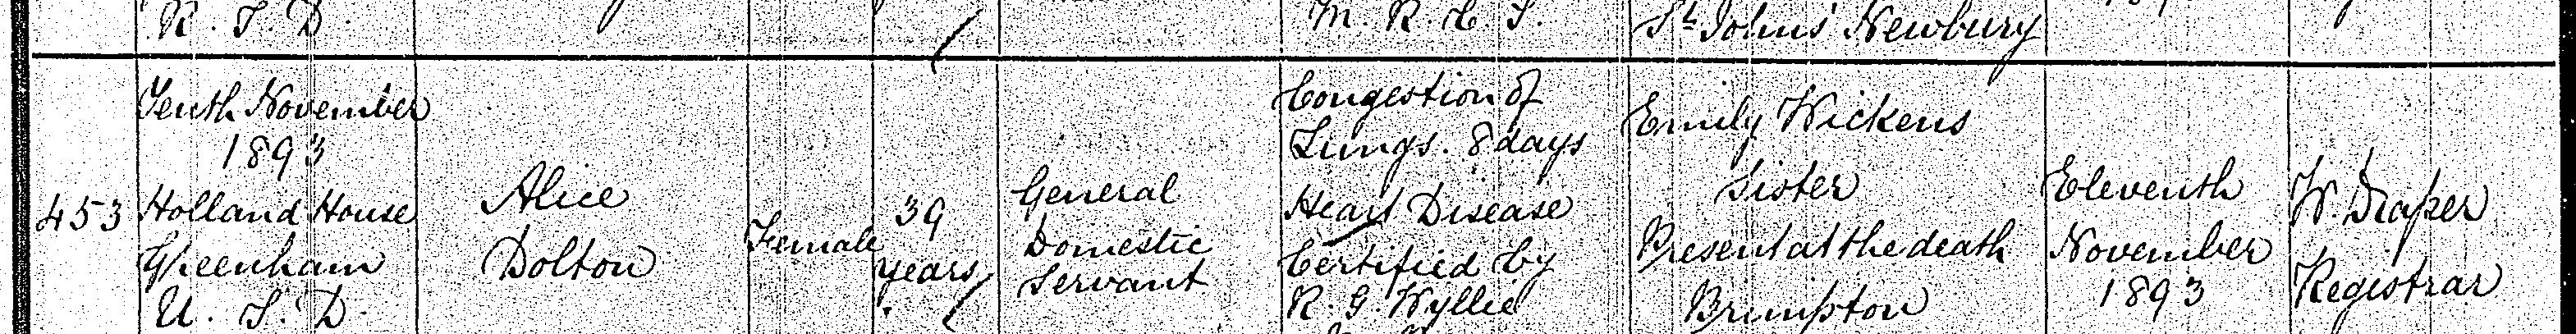 R. S. D.
M. R. C. S.
St Johns Newbury
453
Tenth November
1893
Holland House
Greenham
U. S. D.
Alice
Dolton
Female
39
years
General
Domestic
Servant
Congestion of
Lungs. 8 days
Heart Disease
Certified by
R. G. Wyllie
Emily Wickens
Sister
Present at the death
Brimpton
Eleventh
November
1893
W. Draper
Registrar